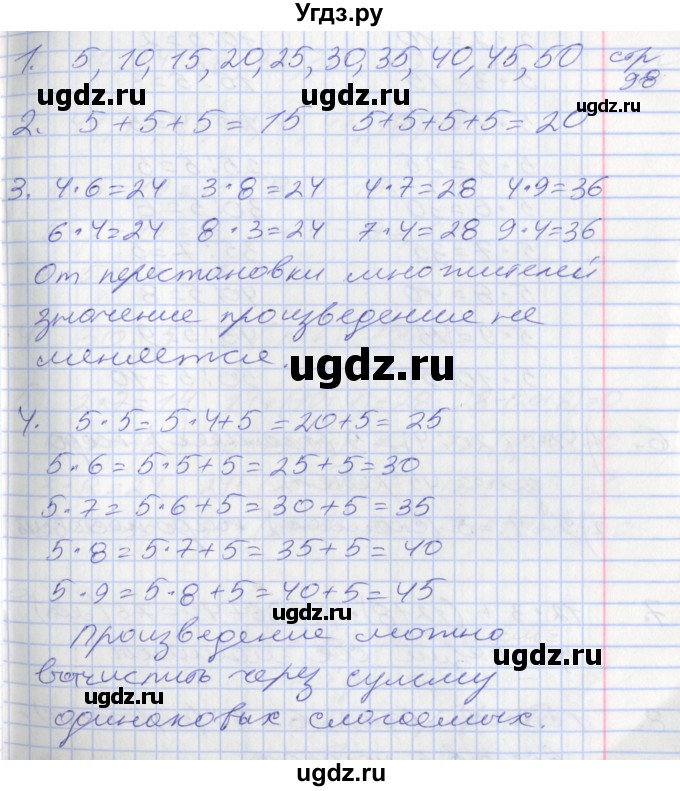 Угдз.ру
1. 5, 10, 15, 20, 25, 30, 35, 40, 45, 50 стр
98
ugdz.ru ugdz.ru
2. 5+5+5=15 5+5+5+5=20
3. 4·6=24 3·8=24 4·7=28 4·9=36
6·4=24 8·3=24 7·4=28 9·4=36
От перестановки множителей
значение произведение не
меняется.
ugdz.ru
4. 5·5=5·4+5=20+5=25
5·6=5·5+5=25+5=30
5·7=5·6+5=30+5=35
5·8=5·7+5=35+5=40
5·9=5·8+5=40+5=45
ugdz.ru
Произведение можно
ugdz.ru
вычислить через сумму
ugdz.ru
одинаковых слагаемых.
ugdz.ru
ugdz.ru